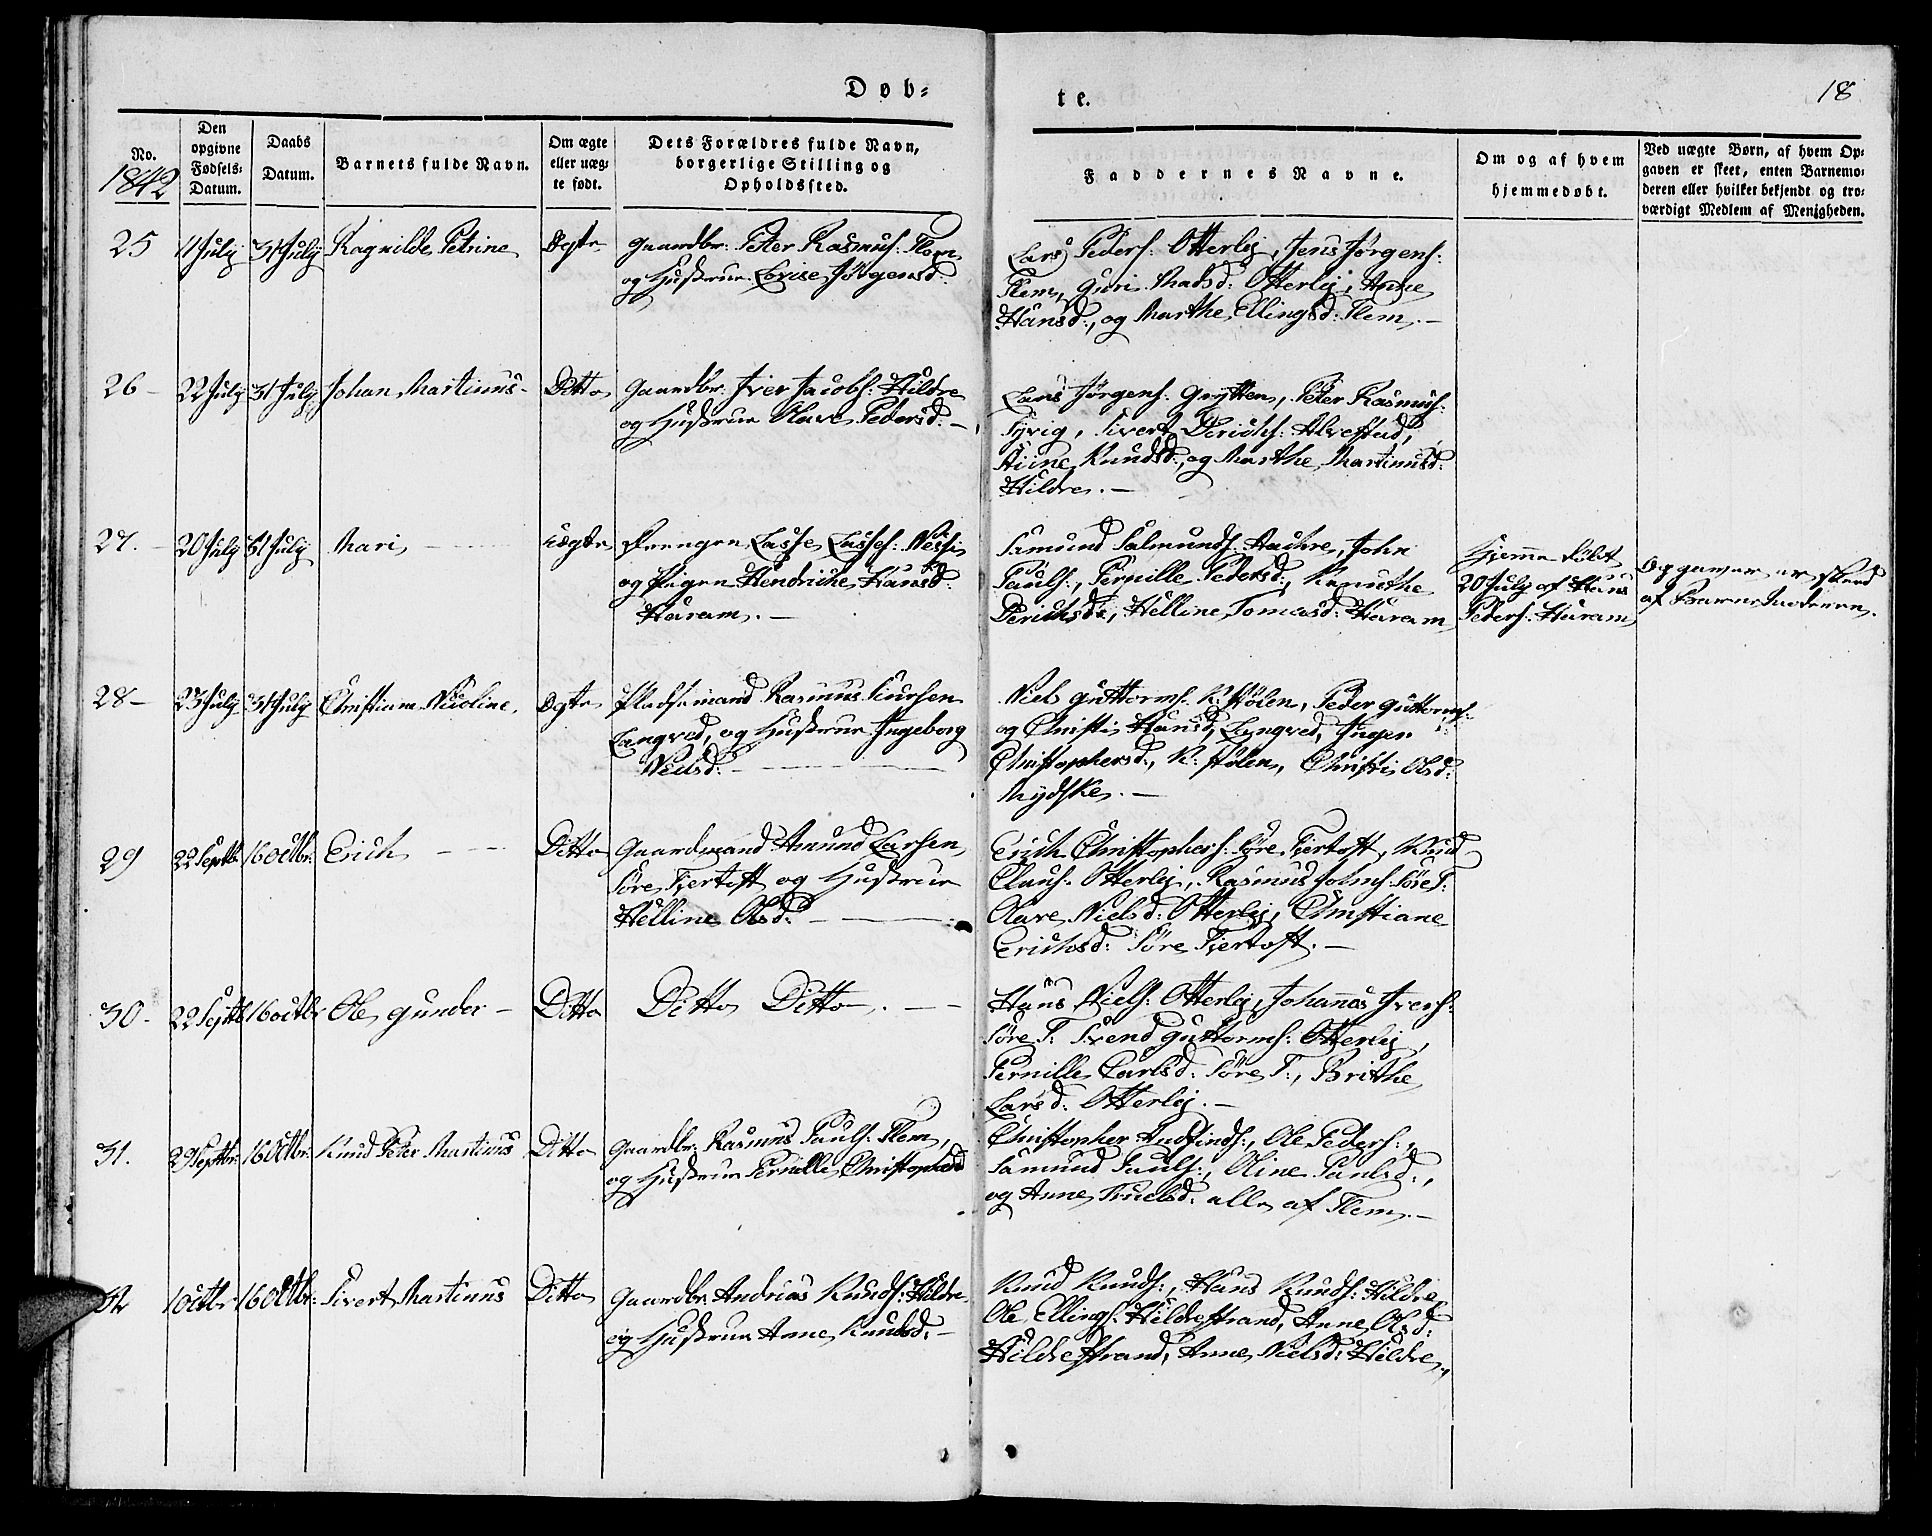 Døb=
te.
18
No.
1842
Den
opgivne
Fødsels-
Datum.
Daabs
Datum.
Barnets fulde Navn.
Om ægte
eller uæg-
te født.
Dets Forældres fulde Navn,
borgerlige Stilling og
Opholdssted.
Faddernes Navne.
Om og af hvem
hjemmedøbt.
Ved uægte Børn, af hvem Op-
gaven er skeet, enten Barnemo-
deren eller hvilket bekjendt og tro-
værdigt Medlem af Menigheden.
25 11 July 31 July Ragnilde Petrine Ægte Gaardbr: Peter Rasmus: Flem
og Hustrue Lovise Jørgensd:
Lars Peders: Otterlej, Jens Jørgens:
Flem, Guri Madsd: Otterlej, Anne
Hansd:, og Marthe Ellingsd: Flem. -
26 - 22 July 31 July Johan Martinus - Ditto Gaardbr: Iver Jacobs: Hildre
og Hustrue Olave Pedersd: -
Lars Jørgens: Grytten, Peter Rasmus:
Syvert Derichs: Alvestad,
Knudsd:, og Marthe Martinusd:
Hildre. -
27. - 20 July 31 July Mari - uægte Drengen Lasse Lasses:
og Pigen Hendriche Hansd:
Haram. -
Samund Salmunds: Haahre, John
Pauls:, Pernille Pedersd:, Knuthe
Derichsd:, Helline Tomasd: Haram
Hjemme døbt
20 July af Hans
Peders: Haram
Opgaven er skeed
af Barnemoderen.
28 - 23 July 31 July Christiane Nicoline. Ægte Pladsemand Rasmus Larsen
Longved, og Hustrue Ingeborg
Nielsd: -
Niels Guttorms: K: Hølen, Peder Guttorms:
og Christi Hansd: Longved, Inger
Christophersd:, K: Hølen, Christi Olsd:
Mydske. -
29 22 Septbr: 16 Octbr: Erich - - Ditto Gaardmand Amund Larsen
Søre Fjertoft og Hustrue
Helline Olsd: -
Erich Christophers: Søre Fjertoft, Knud
Claus: Otterlej, Rasmus Johns: Søre F:
Olave Nielsd: Otterlej, Christiane
Erichsd: Søre Fjertoft. -
30 - 22 Septbr 16 octbr Ole Gunder - Ditto Ditto Ditto. -
Hans Niels: Otterlej, Johannas Ivers:
Søre F: Svend Guttorms: Otterlej,
Pernille Carlsd: Søre F:, Brithe
Larsd: Otterlej. -
31. 29 Septbr: 16 Octbr: Knud Peter Martinus Ditto Gaardbr: Rasmus Pauls: Flem,
og Hustrue Pernille Christophersd
Christopher Andfinds:, Ole Peders:,
Samund Pauls:, Oline Paulsd:,
og Anne Truelsd: alle af Flem. -
32 1 Octbr: 16 Octbr: Sivert Martinus Ditto Gaardbr: Andreas Knuds: Hildre
og Hustrue Anne Knudsd: -
Knud Knuds:, Hans Knuds: Hildre,
Ole Ellings: Hildrestrand, Anne Olsd:
Hildrestrand, Anne Nielsd: Hildre.